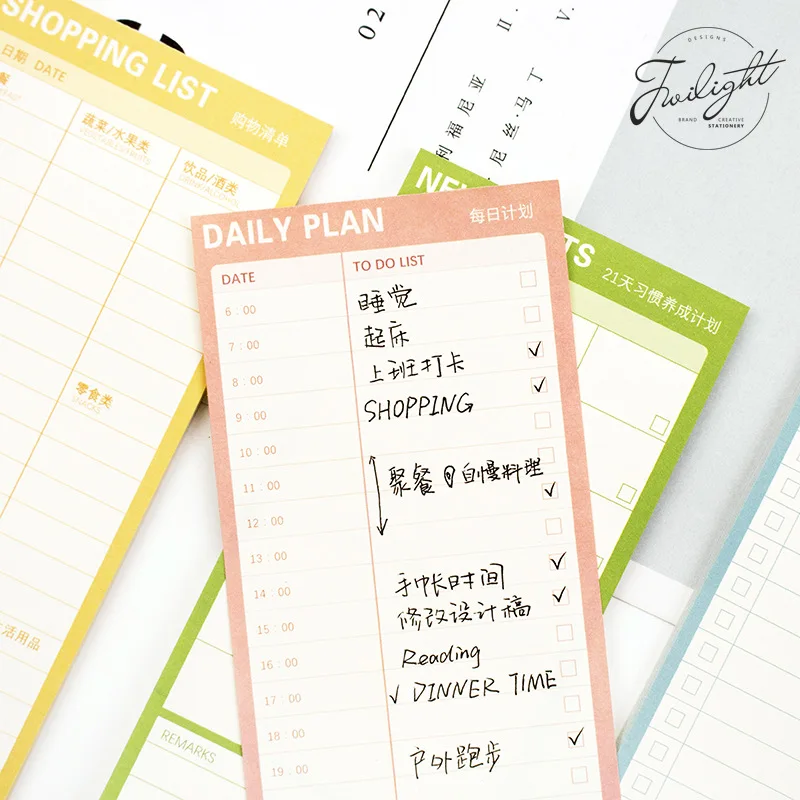 SHOPPING LIST
购物清单
日期 DATE
餐
蔬菜/水果类
饮品/酒类
零食类
SNACKS
活用品
02
II.
V.
利福尼亚
尼丝·马丁
DESIGNS
Twilight
BRAND CREATIVE
STATIONERY
NE
TS
21天习惯养成计划
REMARKS
DAILY PLAN 每日计划
DATE TO DO LIST
6:00 睡觉
7:00 起床
8:00 上班打卡 ✓
9:00 SHOPPING ✓
10:00
11:00 聚餐 @自慢料理 ✓
12:00
13:00
14:00 手帐时间 ✓
15:00 修改设计稿 ✓
16:00 Reading
17:00 ✓ DINNER TIME
18:00
19:00 户外跑步 ✓